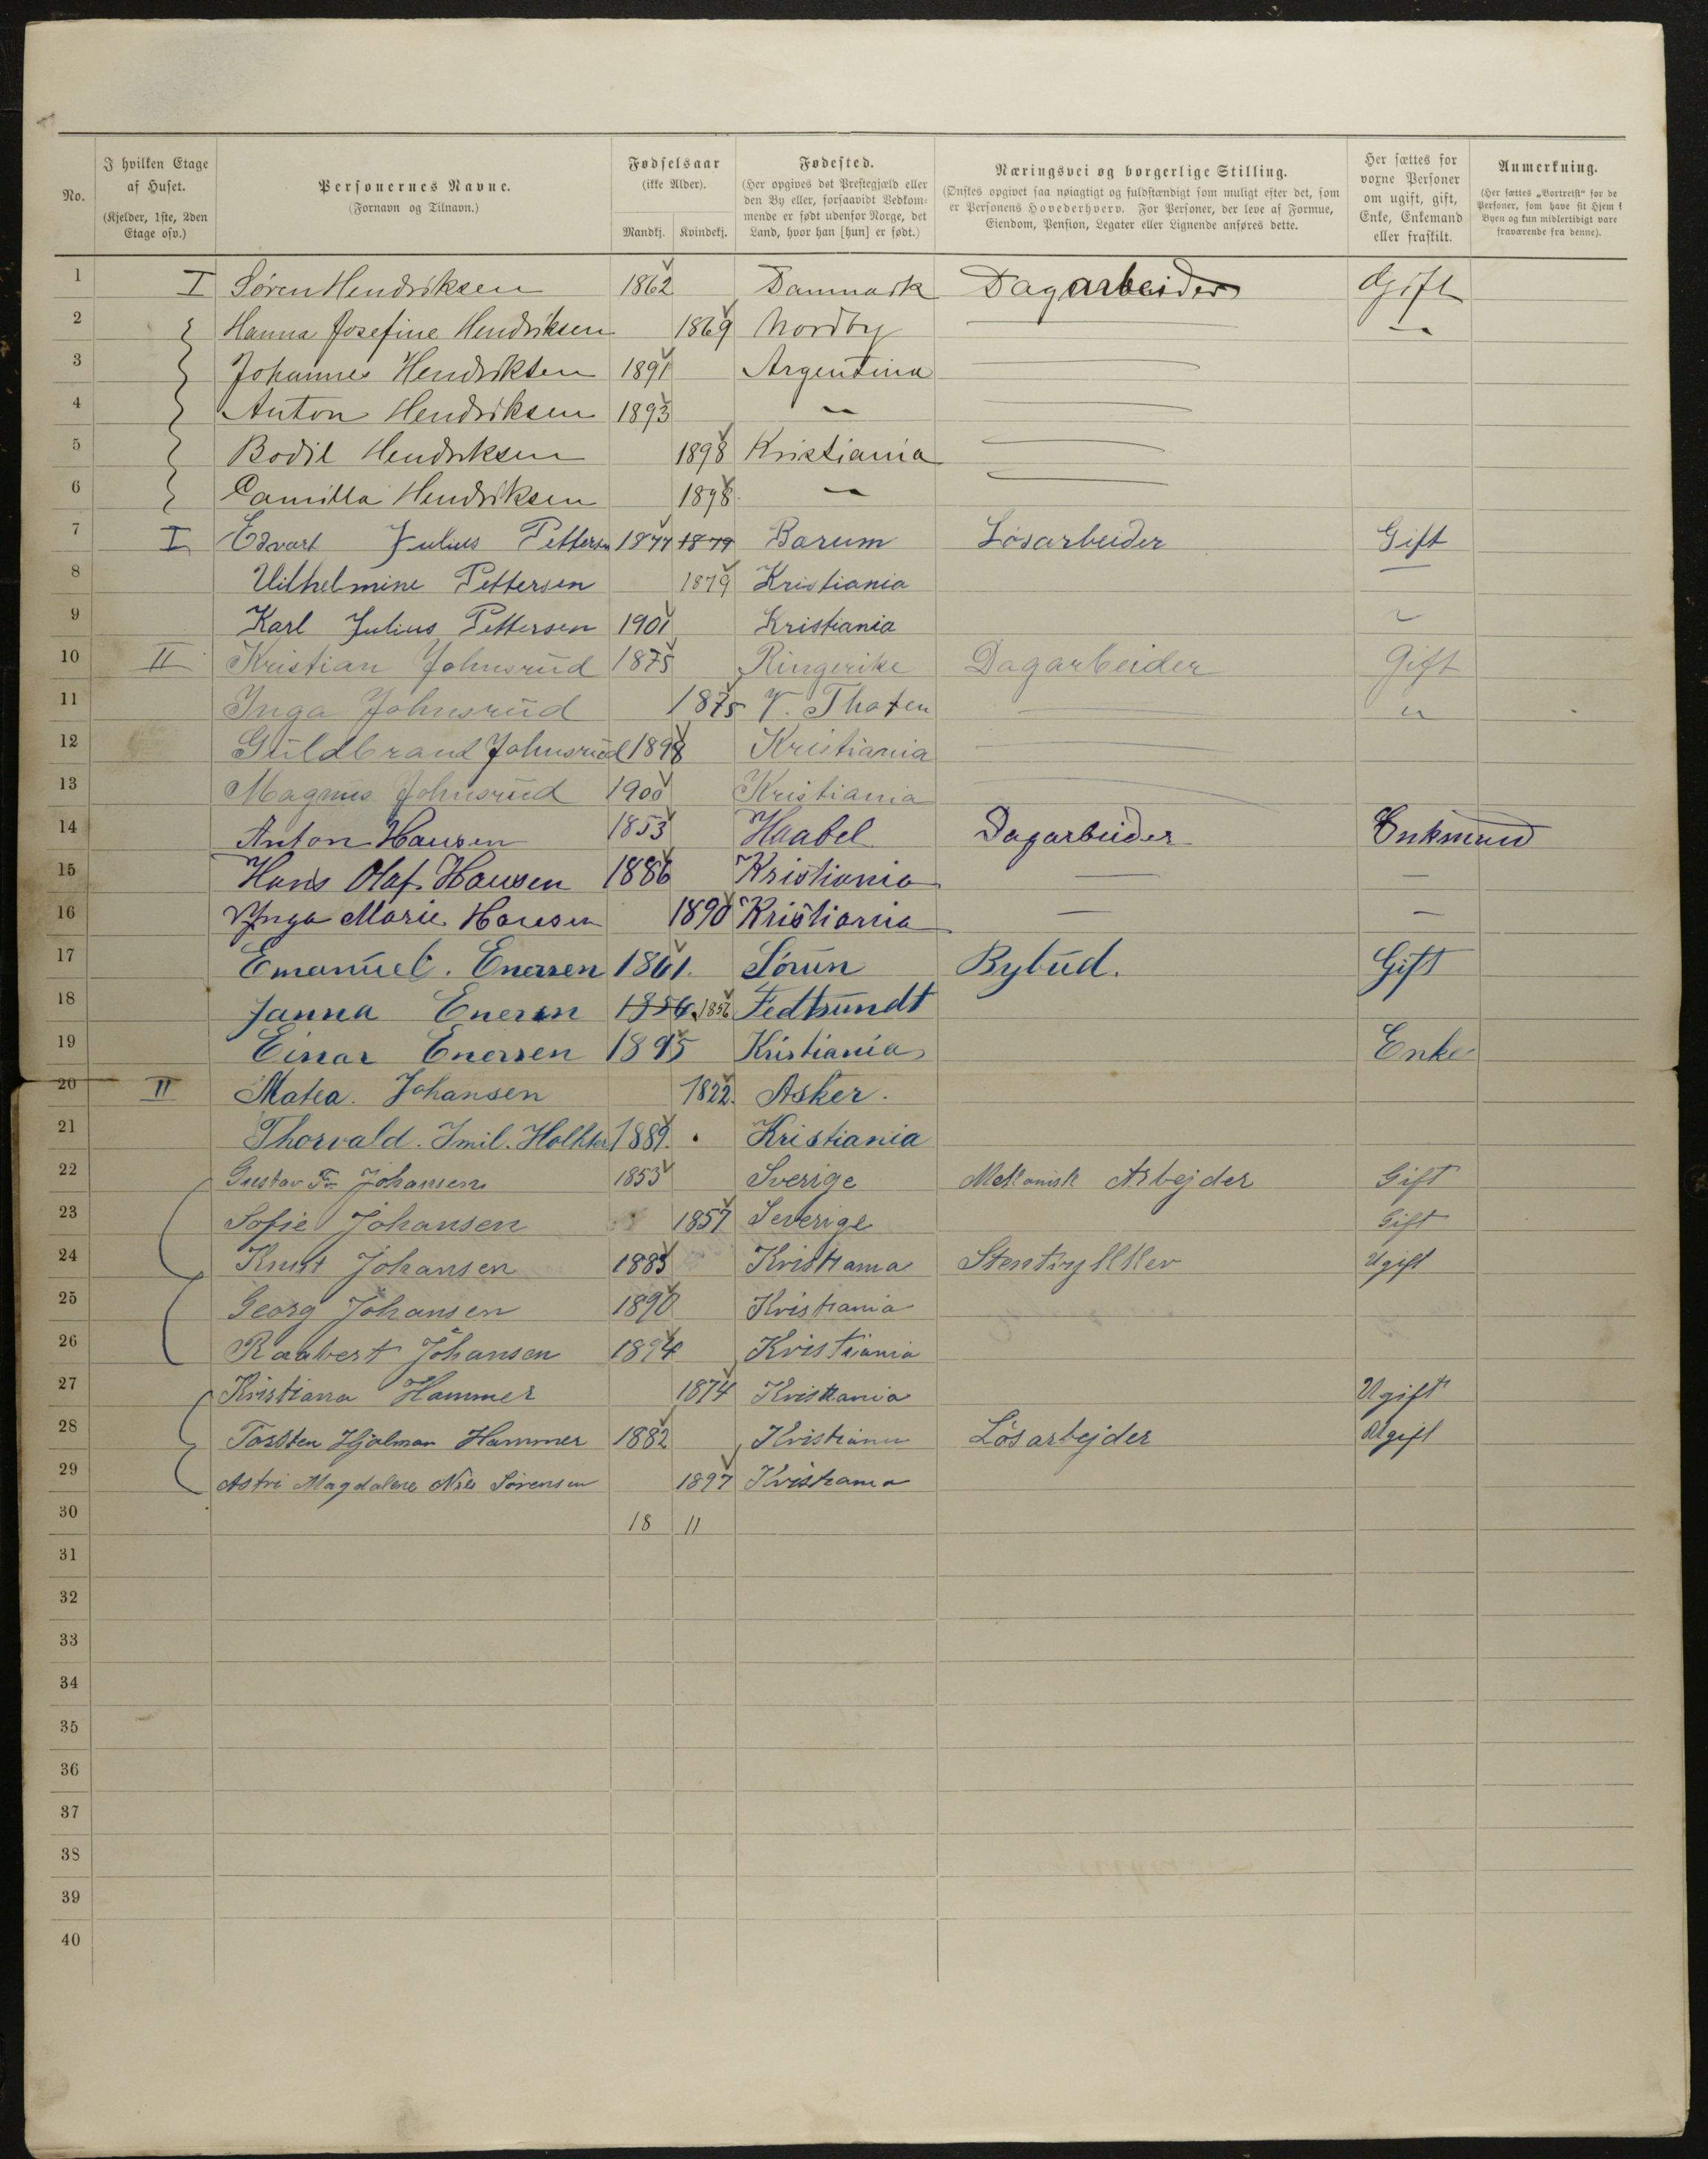 No. I hvilken Etage af Huset. (Kjelder, 1ste, 2den Etage osv.) Personernes Navne. (Fornavn og Tilnavn.) Fødselsaar (ikke Alder). Mandkj. Kvindekj. Fødested. (Her opgives det Prestegjæld eller den By eller, forsaavidt Vedkommende er født udenfor Norge, det Land, hvor han [hun] er født.) Næringsvei og borgerlige Stilling. (Ønskes opgivet saa nøiagtigt og fuldstændigt som muligt efter det, som er Personens Hovederhverv. For Personer, der leve af Formue, Eiendom, Pension, Legater eller Lignende anføres dette. Her sættes for voxne Personer om ugift, gift, Enke, Enkemand eller fraskilt. Anmerkning. (Her sættes „Bortreist“ for de Personer, som have sit Hjem i Byen og kun midlertidigt vare fraværende fra denne).
1 I Søren Hendriksen 1862 Danmark Dagarbeider Gift
2 Hanna Josefine Hendriksen 1869 Nordby — "
3 Johannes Hendriksen 1891 Argentina —
4 Anton Hendriksen 1893 " —
5 Bodil Hendriksen 1898 Kristiania —
6 Camilla Hendriksen 1898 " —
7 I Edvart Julius Pettersen 1877 1879 Barum Løsarbeider Gift
8 Vilhelmine Pettersen 1879 Kristiania —
9 Karl Julius Pettersen 1901 Kristiania
10 II Kristian Johnsrud 1875 Ringerike Dagarbeider Gift
11 Inga Johnsrud 1875 V. Thoten — "
12 Guldbrand Johnsrud 1898 Kristiania —
13 Magnus Johnsrud 1900 Kristiania —
14 Anton Hansen 1853 Haabel Dagarbeider Enkmand
15 Hans Olaf Hansen 1886 Kristiania — —
16 Ynga Marie Hansen 1890 Kristiania — —
17 Emanuel. Enersen 1861. Sørun Bybud. Gift
18 Janna Enersen 1856 1856 Fedtsundt
19 Einar Enersen 1895 Kristiania Enke
20 II Matea. Johansen 1822. Asker.
21 Thorvald. Emil. 1889. Kristiania
22 Gustav Fr. Johansen 1853 Sverige Mekanisk Arbejder Gift
23 Sofie Johansen 1857 Severige Gift
24 Knut Johansen 1883 Kristiania Stentrykker Ugift
25 Georg Johansen 1890 Kristiania
26 Raabert Johansen 1894 Kristiania
27 Kristiana Hammer 1874 Kristiania Ugift
28 Torsten Hjalmar Hammer 1882 Kristiania Løsarbejder Ugift
29 Astri Magdalene Sørensen 1897 Kristiania
30 18 11
31
32
33
34
35
36
37
38
39
40